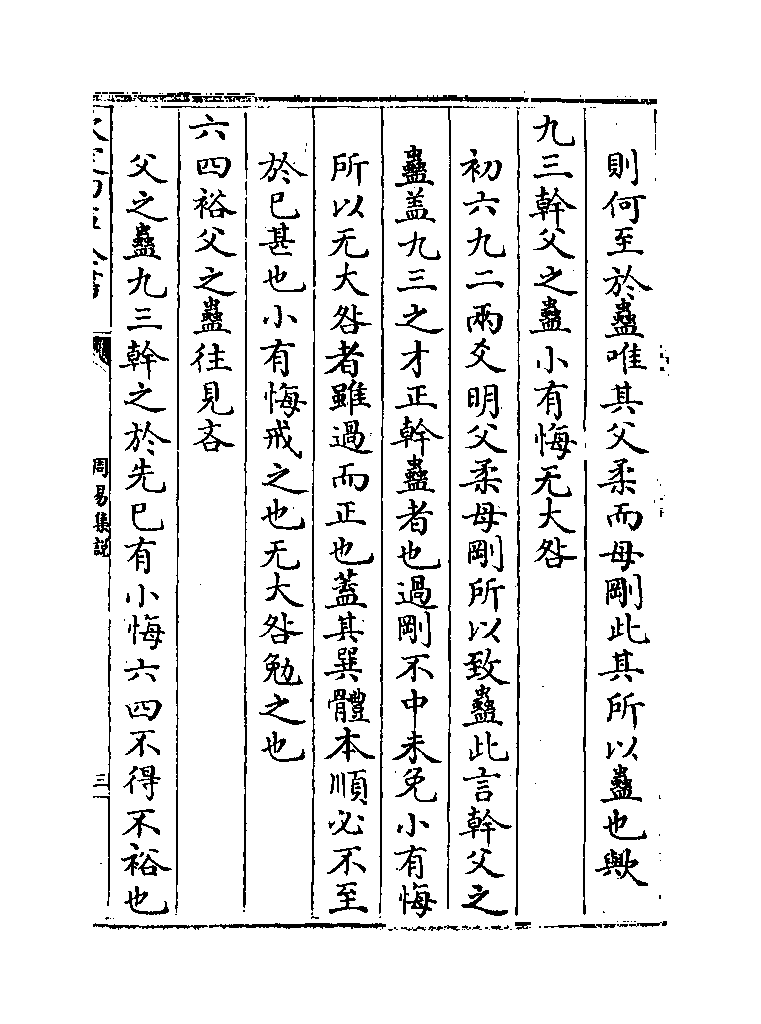 則何至於蠱唯其父柔而母剛此其所以蠱也歟
九三幹父之蠱小有悔无大咎
初六九二兩爻明父柔母剛所以致蠱此言幹父之
蠱盖九三之才正幹蠱者也過剛不中未免小有悔
所以无大咎者雖過而正也蓋其巽體本順必不至
於已甚也小有悔戒之也无大咎勉之也
六四裕父之蠱往見吝
父之蠱九三幹之於先已有小悔六四不得不裕也
周易集說
三